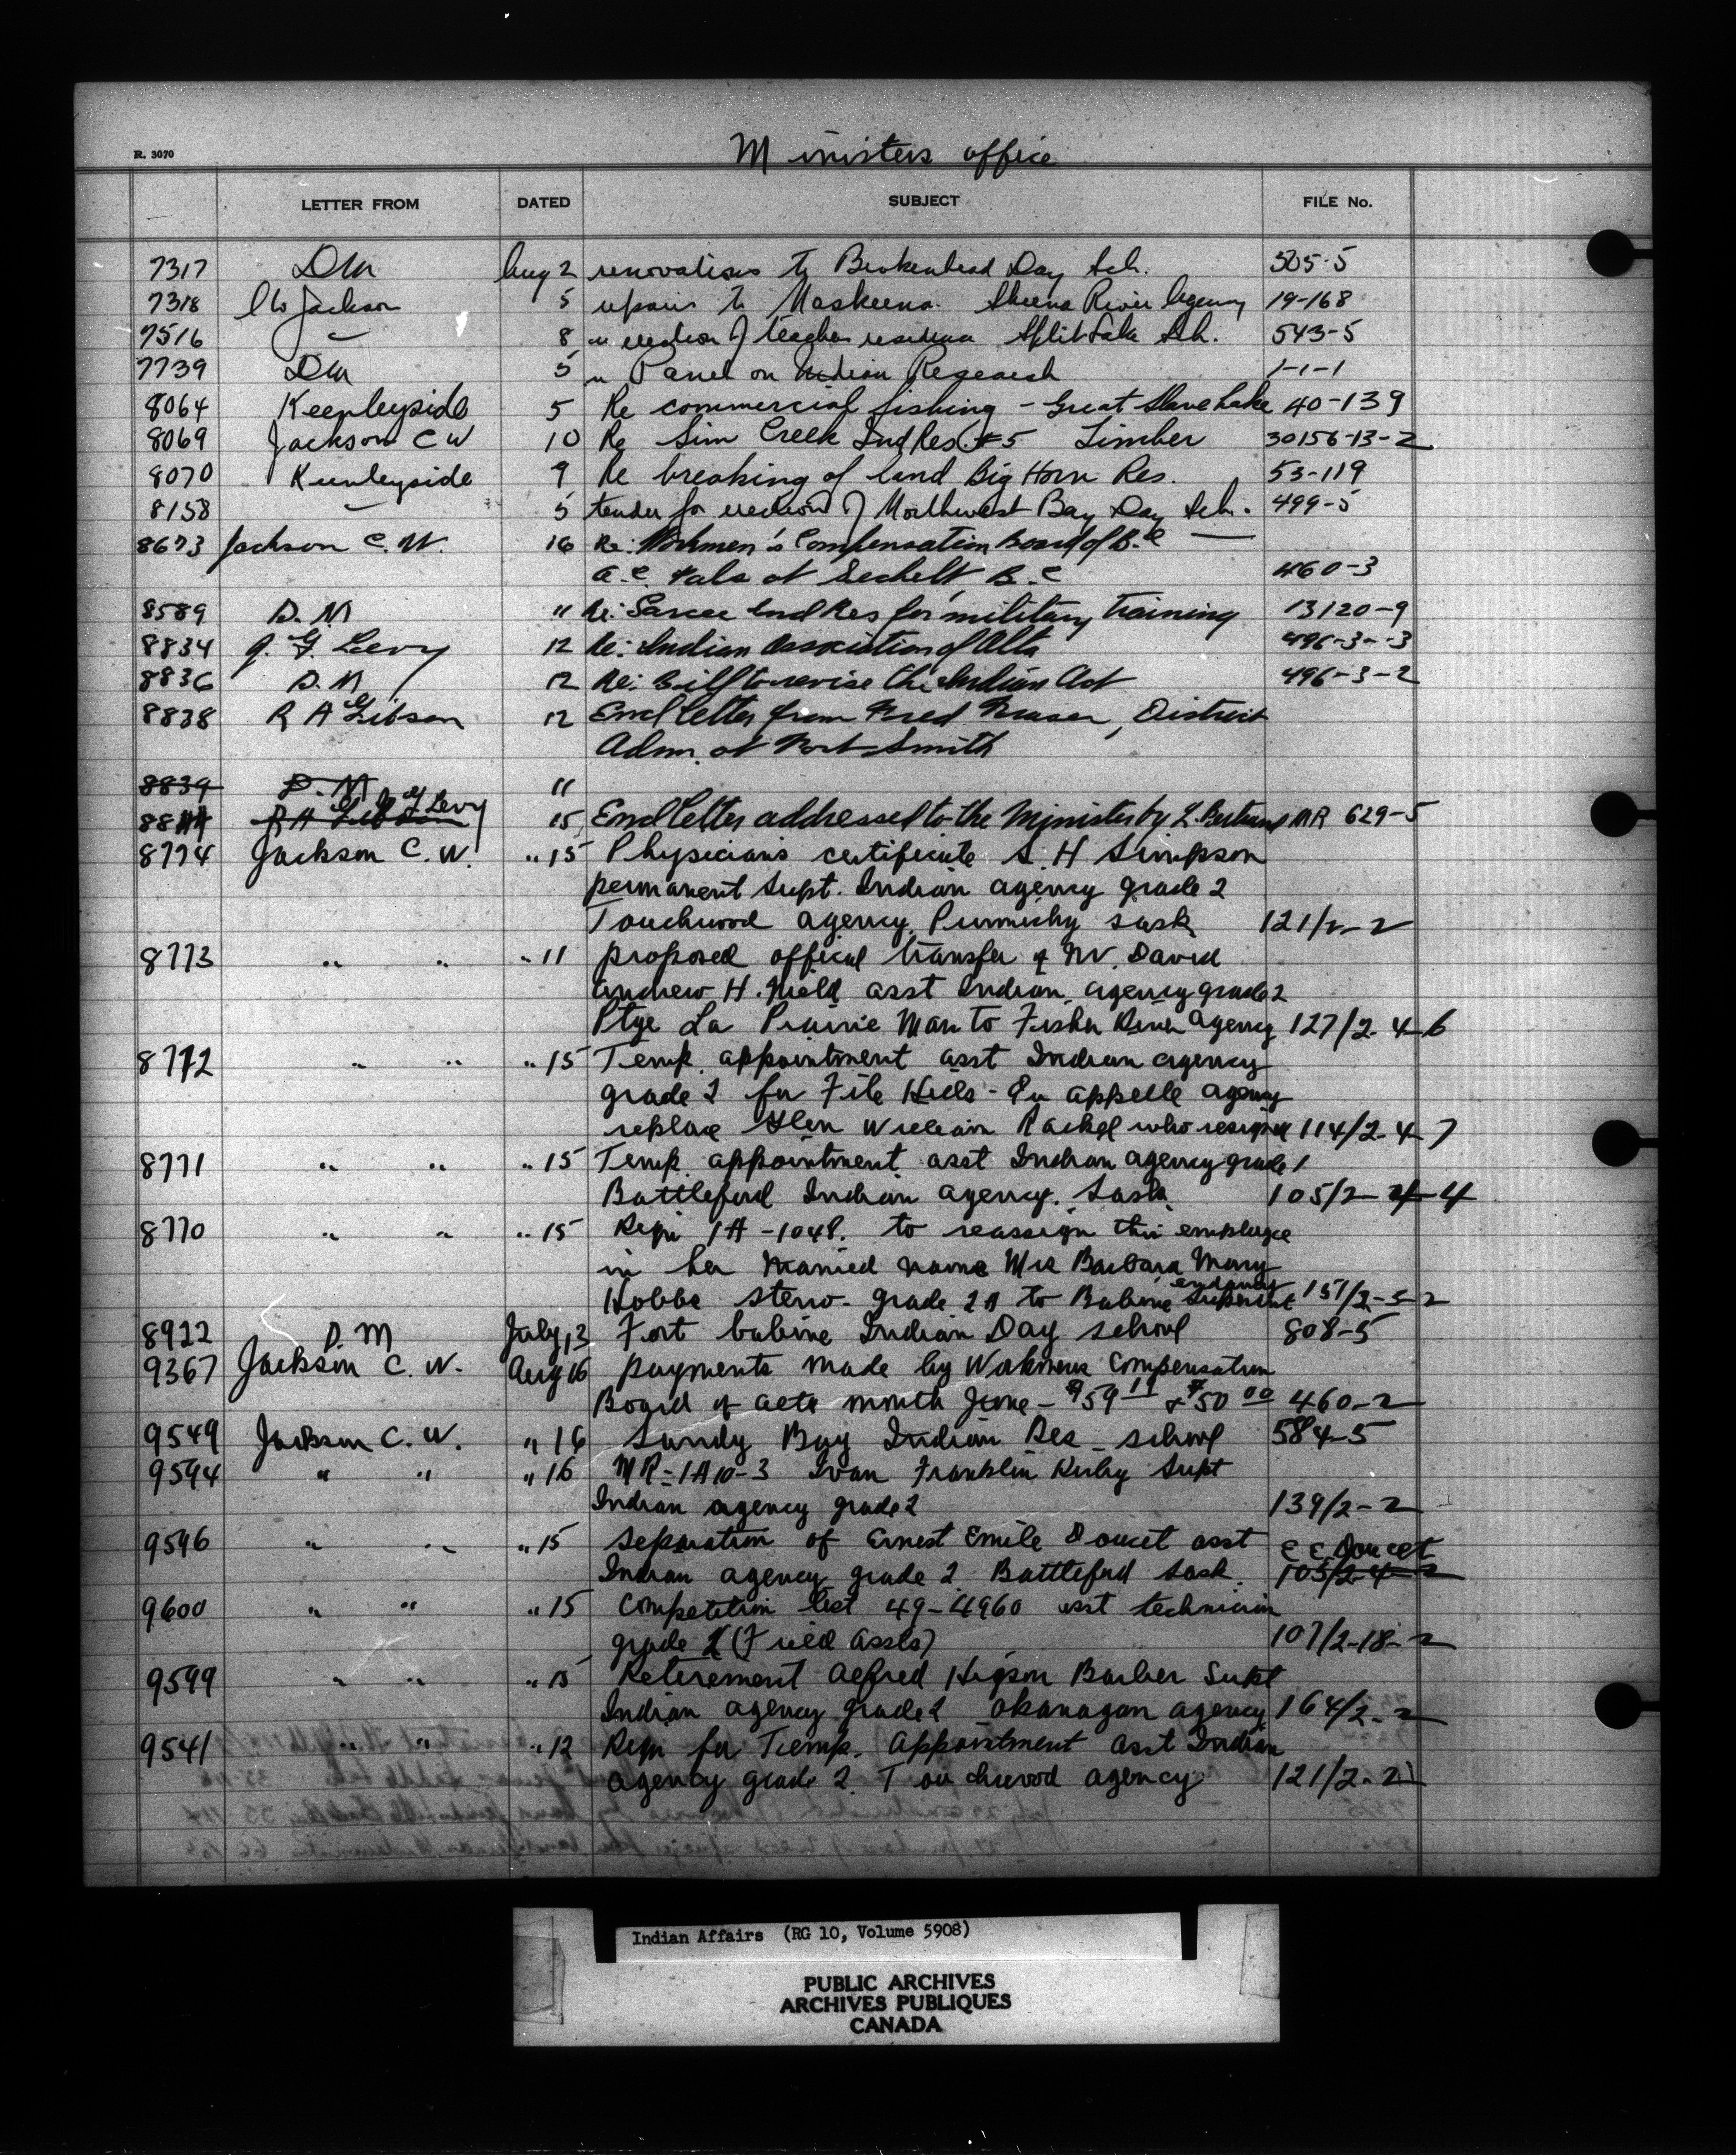 R. 3070
Ministers office
LETTER FROM DATED SUBJECT FILE No.
7317 DM Aug 2 renovations to Brokenhead Day Sch. 505-5
7318 CW Jackson 5 repairs to Maskeena. Skeena River Agency 19-168
7516 " 8 " erection of teacher residence Split Lake Sch. 543-5
7739 DM 5 " Panel on Indian Research 1-1-1
8064 Keenleyside 5 Re commercial fishing - Great Slave Lake 40-139
8069 Jackson C W 10 Re Sim Creek Ind Res. #5 Timber 30156-13-2
8070 Keenleyside 9 Re breaking of land Big Horn Res. 53-119
8158 " 5 tender for erection of Northwest Bay Day Sch. 499-5
8673 Jackson C. W. 16 Re: Workmen's Compensation Board of B.C
a.c. Pals at Sechelt B.C 460-3
8589 D. M " Re: Sarcee Ind Res for military training 13120-9
8834 J. G. Levy 12 Re: Indian Association of Alta 496-3-3
8836 D. M 12 Re: Bill to revise the Indian Act 496-3-2
8838 R A Gibson 12 Encl letter from Fred Fraser, District
Adm. at Fort Smith
8839 D. M "
J G Levy
R A Gibson 15 Encl letter addressed to the Minister by L. Bertrand MR 629-5
8774 Jackson C. W. " 15 Physicians certificate S. H Simpson
permanent Supt. Indian agency grade 2
Touchwood agency Punnichy Sask 121/2-2
8773 " " " 11 proposed offical transfer of Mr. David
Andrew H. Nield asst Indian agency grade 2
Ptge La Prairie Man to Fisher River Agency 127/2-4-6
8772 " " " 15 Temp. appointment asst Indian agency
grade 2 for File Hills - Qu appelle agency
replace Glen William Rackel who resigned 114/2-4-7
8771 " " " 15 Temp. appointment asst Indian agency grade 1
Battleford Indian agency. Sask. 105/2-4-4
8770 " " " 15 Requi 1A-1048. to reassign this employee
in her married name Mrs Barbara Mary
Hobbs steno- grade 2A to Babine Superintendancy 151/2-5-2
8922 D. M July, 13 Fort babine Indian Day school 808-5
9367 Jackson C. W. Aug 16 payments made by Workmens Compensation
Board of acts month June - $59 11 & $50 00 460-2
9549 Jackson C. W. " 16 Sandy Bay Indian Res - school 584-5
9594 " " " 16 MR-1A10-3 Ivan Franklin Kirby Supt
Indian agency grade 2 139/2-2
9596 " " " 15 Separation of Ernest Emile Doucet asst E E Doucet
Indian agency grade 2 Battleford Sask. 105/2-4-2
9600 " " " 15 Competition list 49-4960 asst technician
grade 2 (Field Assts) 107/2-18-2
9599 " " " 15 Retirement Alfred Higson Barber Supt
Indian agency grade 2 Okanagan agency 164/2-2
9541 " " " 12 Requ for Temp. Appointment asst Indian
agency grade 2. Touchwood agency 121/2-2
Indian Affairs (RG 10, Volume 5908)
PUBLIC ARCHIVES
ARCHIVES PUBLIQUES
CANADA